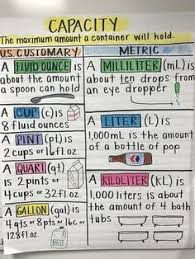 CAPACITY
The maximum amount a container will hold.
U.S. CUSTOMARY
A FLUID OUNCE is
about the amount
a spoon can hold
A CUP (c) is
8 fluid ounces
A PINT (pt) is
2 cups or 16 fl oz.
A QUART (qt)
is 2 pints or
4 cups or 32 fl oz.
A GALLON (gal) is
4 qts or 8 pts or 16c or
128 fl oz.
METRIC
A MILLILITER (mL) is
about ten drops from
an eye dropper
A LITER (L) is
1,000mL is the amount
of a bottle of pop
A KILOLITER (kL) is
1,000 liters is about
the amount of 4 bath
tubs